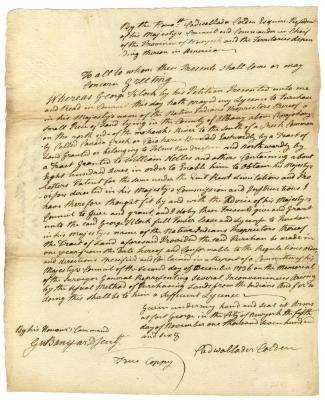 By the Honble. Cadwallader Colden Esquire President
of his Majesty's Council and Commander in Chief
of the Province of New york and the Territories depen
ding thereon in America
To all to whom these Presents shall come or may
Concern Greeting
Whereas George Klock by his Petition Presented unto me
and Read in Council this day hath prayed my Lycence to Purchase
in his Majesty's name of the Native Indians Proprietors thereof a
Small Piece of Land lying in the County of Albany
on the north side of the mohawks River to the
by Called Canada Creek or and Eastwardly by a Tract of
Land Granted or belonging to and northwardly by
a Tract granted to William Nellis and others Containing about
Eight hundred Acres in order to Enable him to Obtain his Majestys
Letters Patent for the same under the Quit Rent Limitations and Pro
visos directed in his Majesty's Commission and Instructions I
have therefore thought fit by and with the Advice of his Majestys
Council to Give and grant, and I do by these Presents give and Grant
unto the said George Klock full Power Leave and Lycence to Purchase
in his Majesty's name of the Native Indians Proprietors thereof
the Tract of Land aforesaid Provided the said Purchase be made in
one year from the date hereof and Conformable to the
and directions Specified and for Causes in a Report of a Committee of his
Majesty's Council of the Second day of December 1736 on the Memorial
of the Surveyor General Representing Several Inconveniences Arising
by the Usual Method of Purchasing Lands from the Indians And for so
doing this shall be to him a Sufficient Lycence
Given under my hand and Seal at Arms
at Fort George in the City of New york the fifth
day of November one thousand Seven hundred
and Sixty
Cadwallader Colden
By his Honours Command
Gw Banyar D Secry
True Coppy